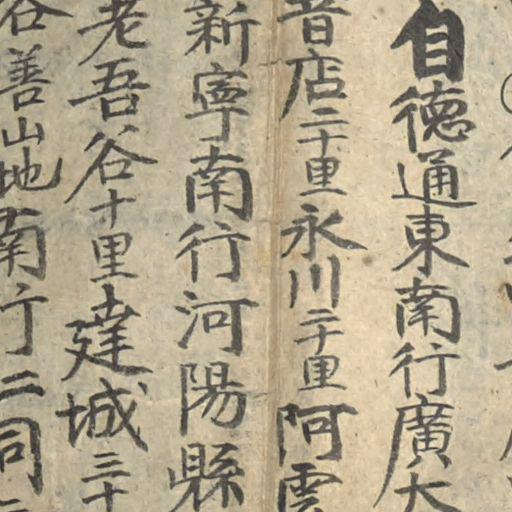 自德通東南行廣大
音店二十里永川二十里阿雲
新寧南行河陽縣
老吾谷十里建城三十
谷善山地南行二同